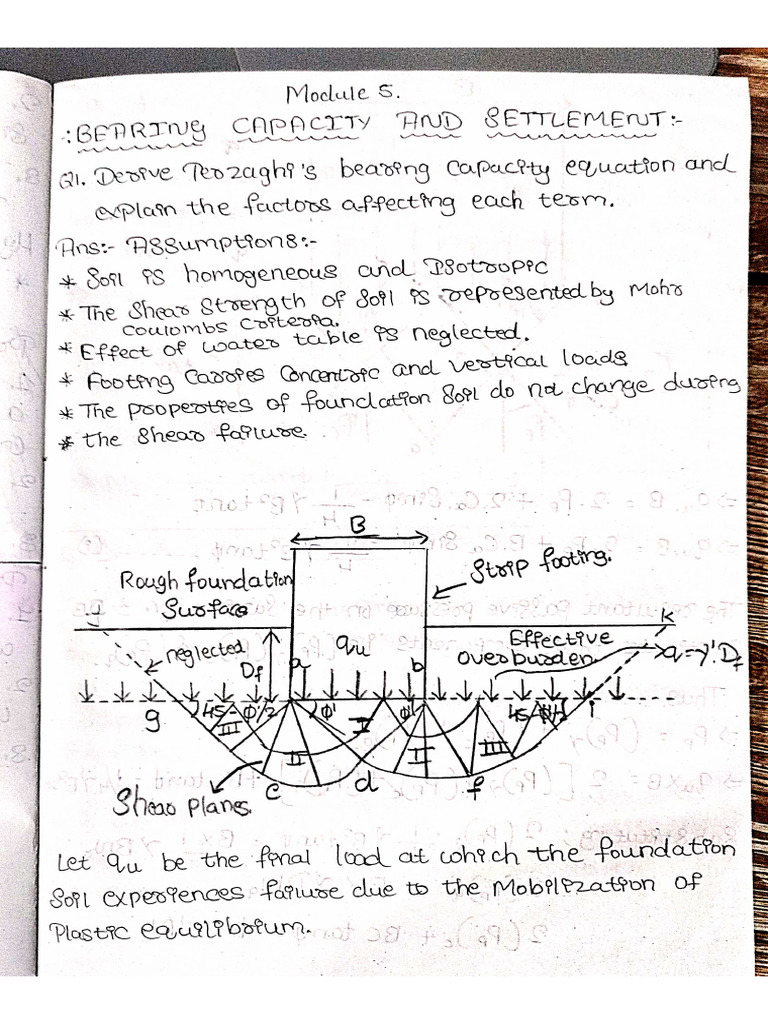 Module 5.
:BEARING CAPACITY AND SETTLEMENT:-
Q1. Derive Terzaghi's bearing capacity equation and
explain the factors affecting each term.
Ans:- Assumptions:-
* Soil is homogeneous and Isotropic
* The Shear Strength of Soil is represented by Mohr
Coulombs Criteria.
* Effect of water table is neglected.
* Footing Carries Concentric and vertical loads
* The properties of foundation Soil do not change during
* the Shear failure.
B
Rough foundation
Surface
Strip footing.
j
k
neglected
Df
a
qu
b
Effective
overburden.
q=γ'.Df
g
45
φ'/2
φ'
I
φ'
45
i
III
II
II
III
Shear planes.
c
d
f
Let qu be the final load at which the foundation
Soil experiences failure due to the Mobilization of
Plastic equilibrium.